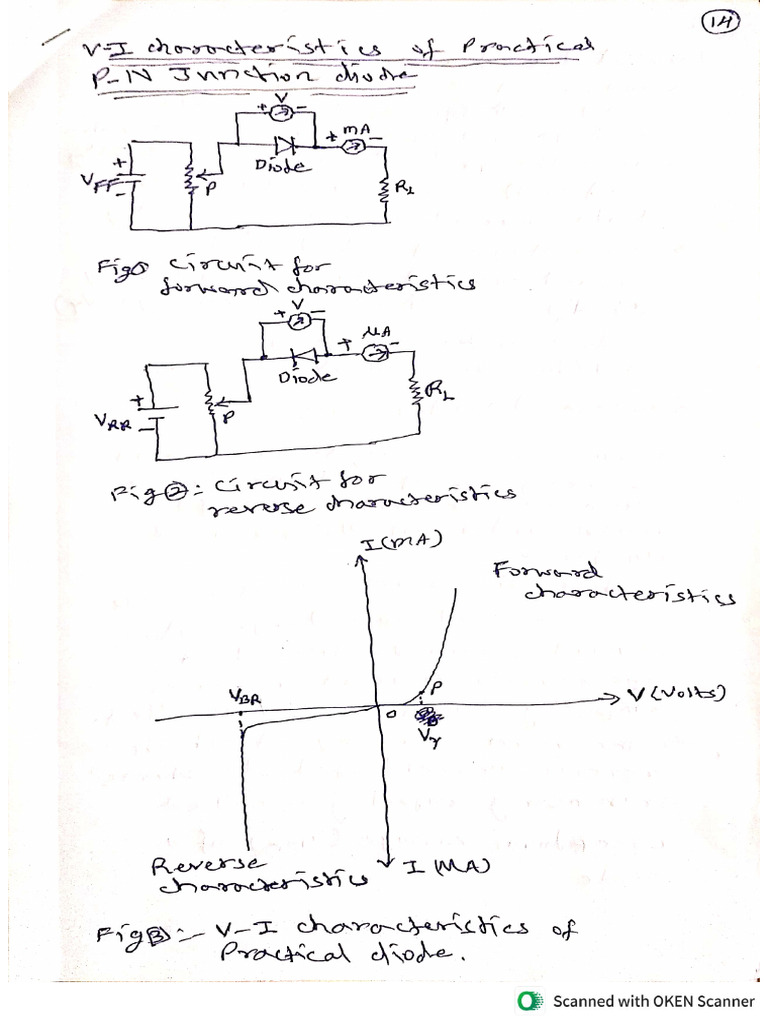 14
V-I characteristics of Practical
P-N Junction diode
+ V -
+ mA -
Diode
+
VFF
-
P
RL
Fig① Circuit for
forward characteristics
+ V -
+ μA -
Diode
+
VRR
-
P
RL
Fig②: Circuit for
reverse characteristics
I(mA)
Forward
characteristics
P
VBR
O
V(Volts)
Vγ
Reverse
characteristics
I (μA)
Fig③:- V-I characteristics of
Practical diode.
Scanned with OKEN Scanner